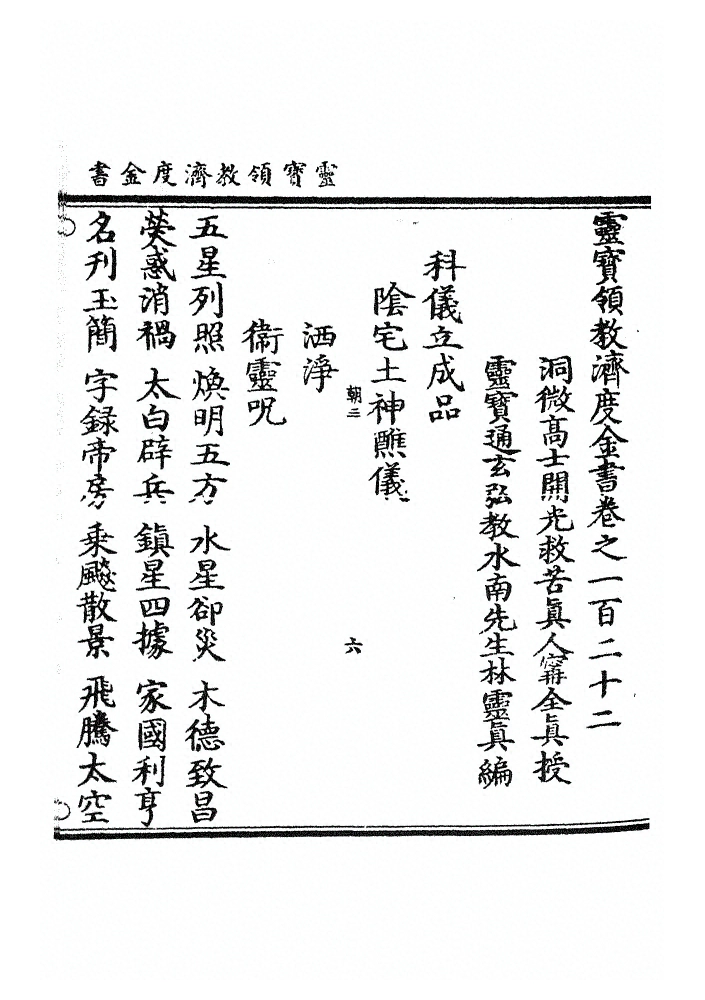 靈寶領教濟度金書
靈寶領教濟度金書卷之一百二十二
洞微高士開光救苦眞人甯全眞授
靈寶通玄弘教水南先生林靈眞編
科儀立成品
陰宅土神醮儀
朝三
六
洒淨
衞靈呪
五星列照 煥明五方 水星卻災 木德致昌
熒惑消禍 太白辟兵 鎭星四據 家國利亨
名刋玉簡 字録帝房 乘飈散景 飛騰太空